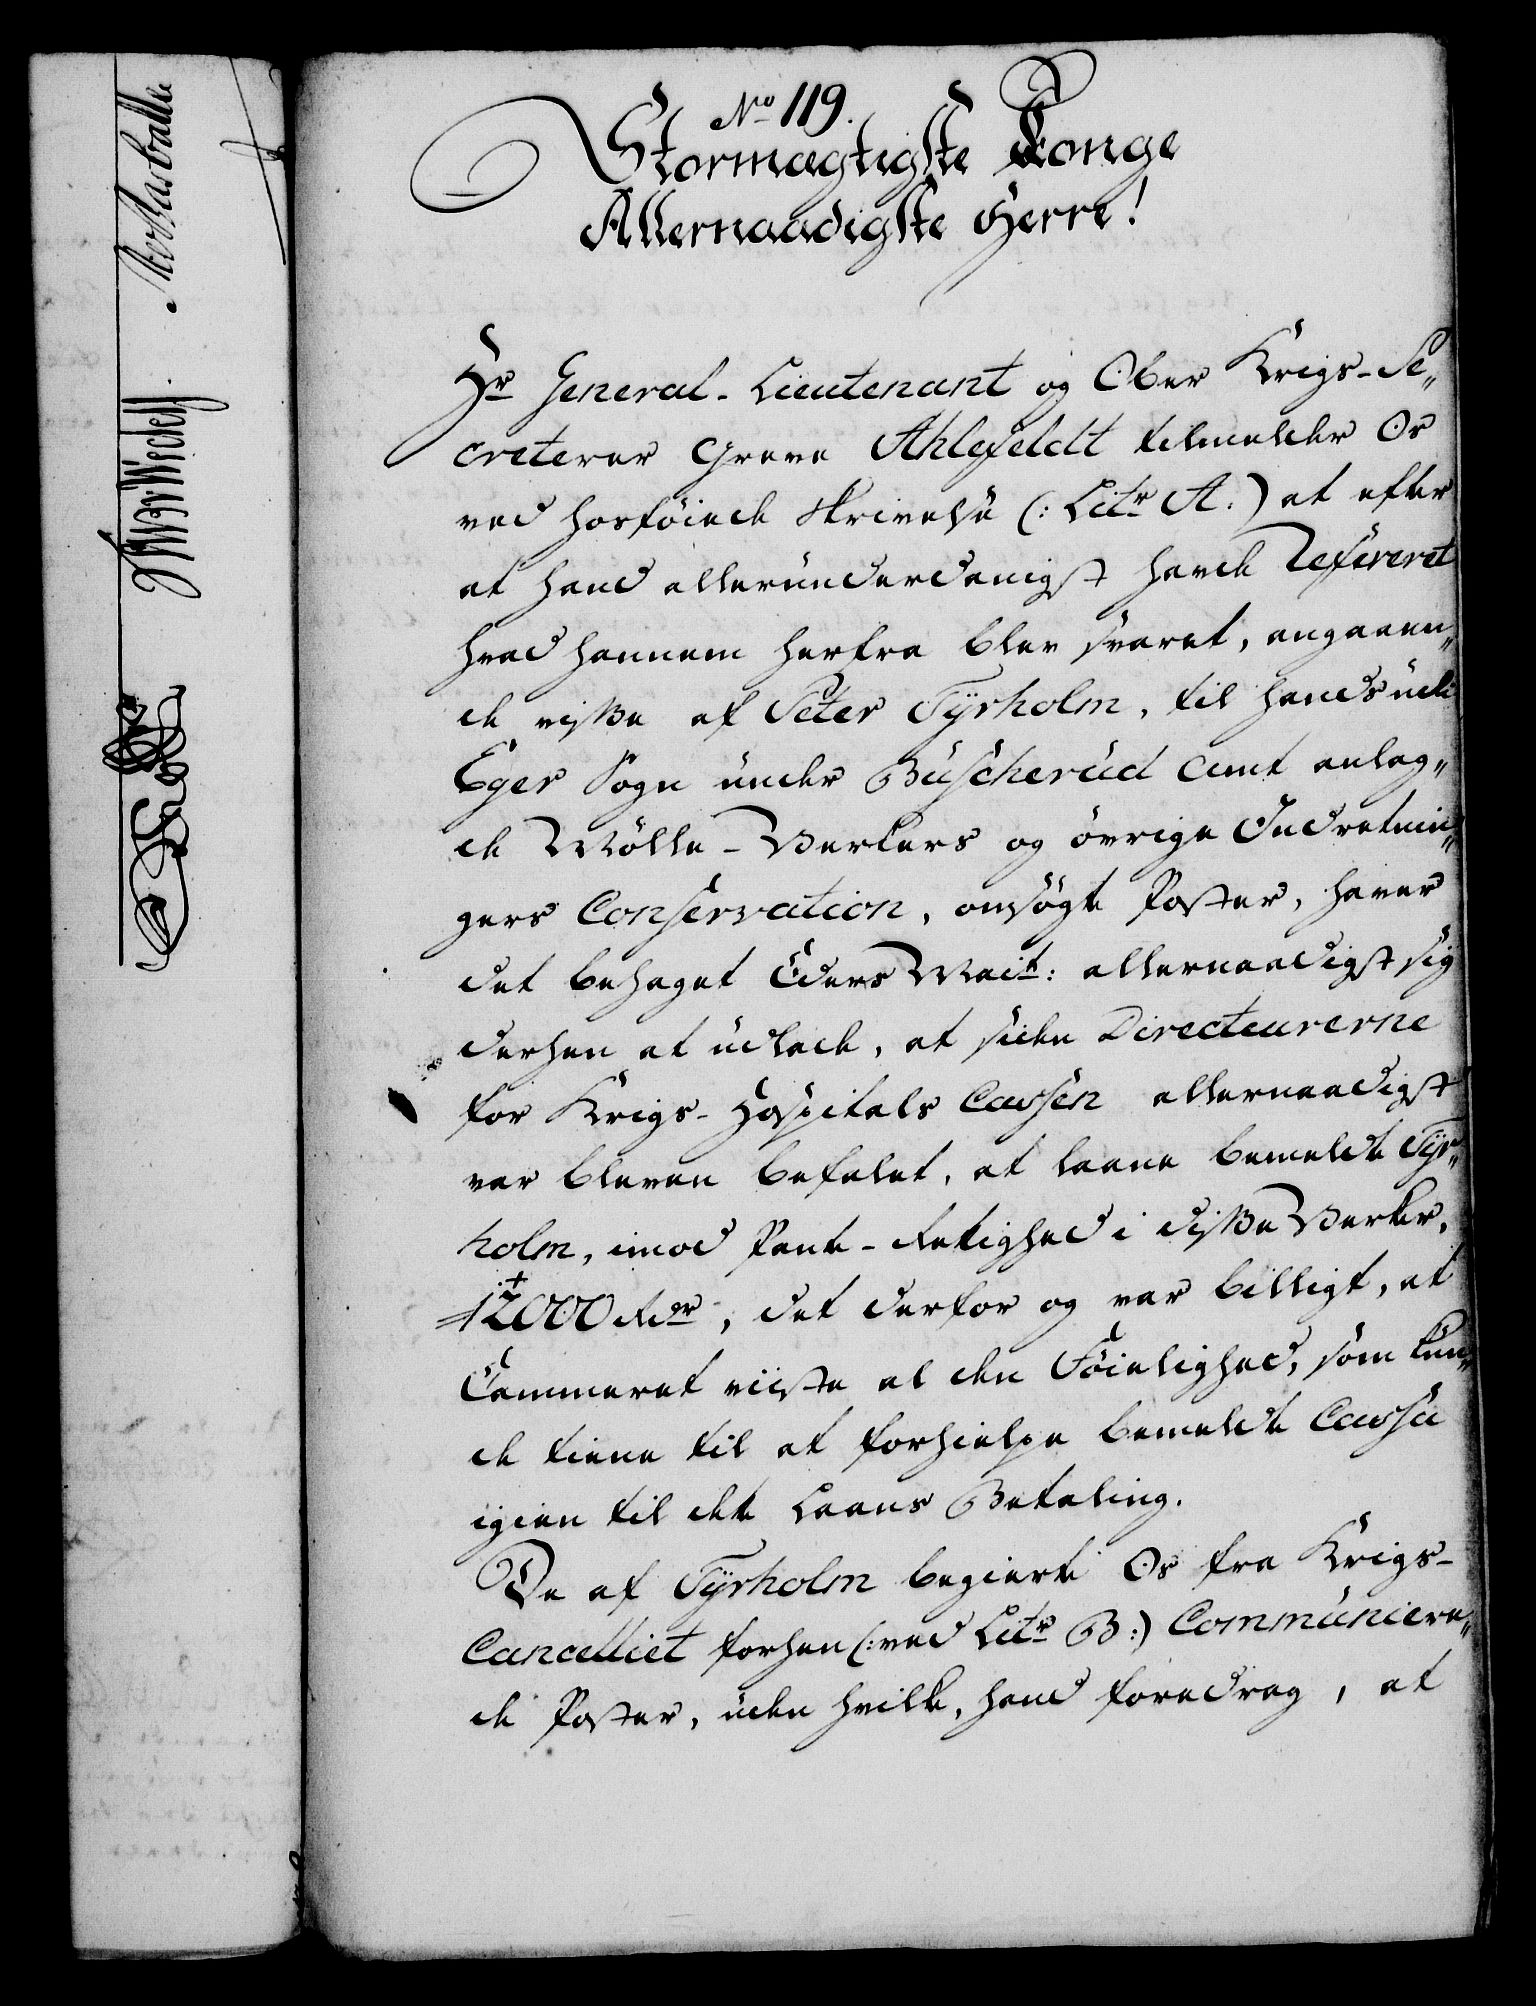 No 119.
Stormægtigste Konge
Allernaadigste Herre!
Hr General-Lieutenant og Ober Krigs-Se„
creterer Greve Ahlefeldt tilmelder Os
ved hosföiede Skrivelse (: Litr A:) at efter
at hand allerunderdanigst havde Refereret
hvad hannem herfra blev svaret, angaaen„
de visse af Peter Tyrholm, til hands udi
Eger Sogn under Buscherud Amt anlag„
de Mölle-Verkers og övrige Indretnin„
gers Conservation, ansögte Poster, haver
det behaget Eders Mait: allernaadigst sig
derhen at udlade, at siden Directeurerne
for Krigs-Hospitals Cassen allernaadigst
var bleven befalet, at laane bemeldte Tyr„
holm, imod Pante-Rettighed i disse Verker,
12000 Rdr, det derfor og var billigt, at
Cammeret viiste al den Föielighed, som kun„
de tiene til at forhielpe bemeldte Cassa
igien til dets Laans Betaling.
De af Tyrholm begierte Os fra Krigs-
Cancelliet forhen (: ved Litr B:) Communicere„
de Poster, uden hvilke, hand foredrag, at